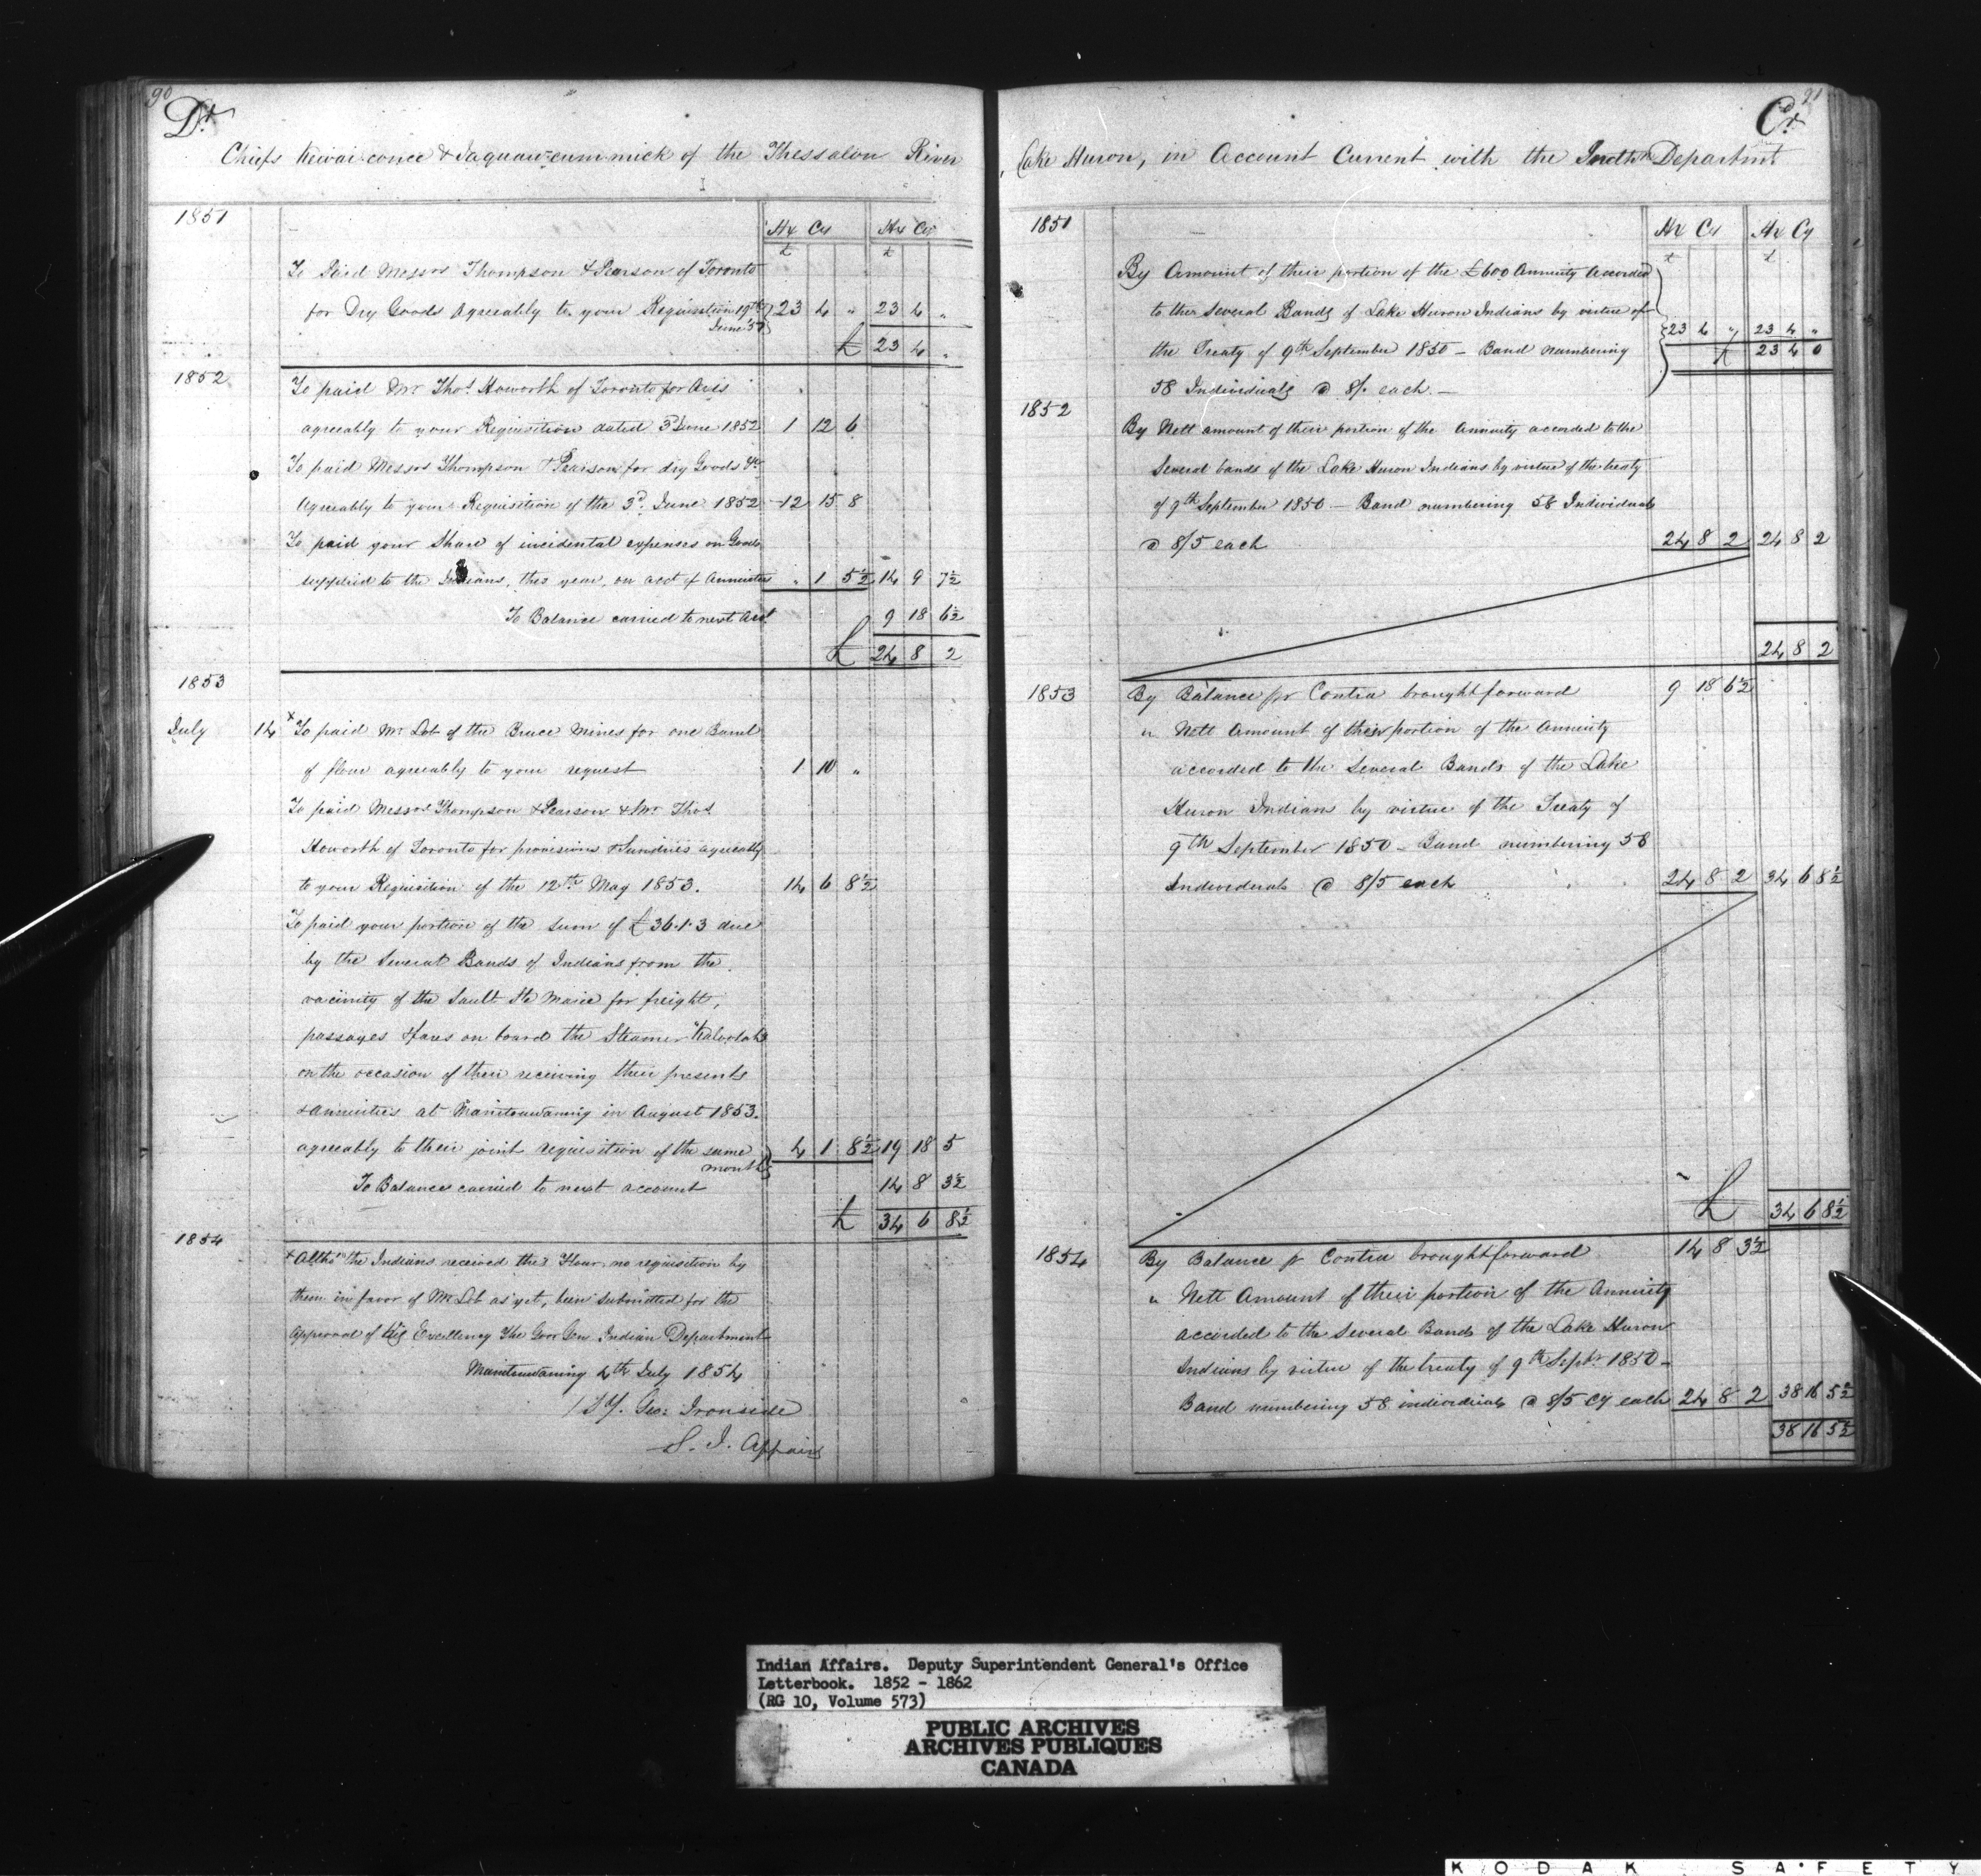 90
Dr
Chiefs Kewai-conce & Jaquaw-cum-mick of the Thessalon River
1851
Hx Cy Hx Cy
£ £
To Paid Messrs Thompson & Pearson of Toronto
for Dry Goods agreeably to your Requisition 19th June '51 23 4 " 23 4 "
£ 23 4 "
1852
To paid Mr Thos Howorth of Toronto for Axes
agreeably to your Requisition dated 3d June 1852 1 12 6
To paid Messrs Thompson & Pearson for dry Goods &c
agreeably to your Requisition of the 3d June 1852 12 15 8
To paid your Share of incidental expenses on Goods
supplied to the Indians, this year, on acct of Annuities " 1 5½ 14 9 7½
To Balance carried to next Acct 9 18 6½
£ 24 8 2
1853
July 14 x To paid Mr Lob of the Bruce Mines for one Barrel
of flour agreeably to your request 1 10 "
To paid Messrs Thompson & Pearson & Mr Thos
Howorth of Toronto for provisions & Sundries agreeably
to your Requisition of the 12th May 1853. 14 6 8½
To paid your portion of the sum of £36.1.3 due
by the Several Bands of Indians from the
vacinity of the Sault Ste Marie for freight,
passages & fares on board the Steamer "Kaloolah"
on the occasion of their receiving their presents
& annuities at Manitouwaning in August 1853.
agreeably to their joint requisition of the same month 4 1 8½ 19 18 5
To Balance carried to next account 14 8 3½
£ 34 6 8½
1854
x Altho' the Indians received this Flour, no requisition by
them in favor of Mr Lob as yet, been submitted for the
approval of His Excellency The Govr Gen Indian Department
Manitouwaning 4th July 1854
Geo: Ironside
S. I. Affairs
91
Cr
Lake Huron, in Account Current with the Indian Departmt
1851
Hx Cy Hx Cy
£ £
By Amount of their portion of the £600 Annuity accorded
to the Several Bands of Lake Huron Indians by virtue of
the Treaty of 9th September 1850 – Band numbering 23 4 " 23 4 "
58 Individuals @ 8/. each. – £ 23 4 0
1852
By Nett amount of their portion of the Annuity accorded to the
Several bands of the Lake Huron Indians by virtue of the treaty
of 9th September 1850 – Band numbering 58 Individuals
@ 8/5 each 24 8 2 24 8 2
24 8 2
1853 By Balance pr Contra brought forward 9 18 6½
" Nett Amount of their portion of the Annuity
accorded to the Several Bands of the Lake
Huron Indians by virtue of the Treaty of
9th September 1850 – Band numbering 58
Individuals @ 8/5 each 24 8 2 34 6 8½
£ 34 6 8½
1854 By Balance pr Contra brought forward 14 8 3½
" Nett Amount of their portion of the Annuity
accorded to the Several Bands of the Lake Huron
Indians by virtue of the treaty of 9th Septr 1850 –
Band numbering 58 individuals @ 8/5 Cy each 24 8 2 38 16 5½
38 16 5½
Indian Affairs. Deputy Superintendent General's Office
Letterbook. 1852 - 1862
(RG 10, Volume 573)
PUBLIC ARCHIVES
ARCHIVES PUBLIQUES
CANADA
KODAK SAFETY